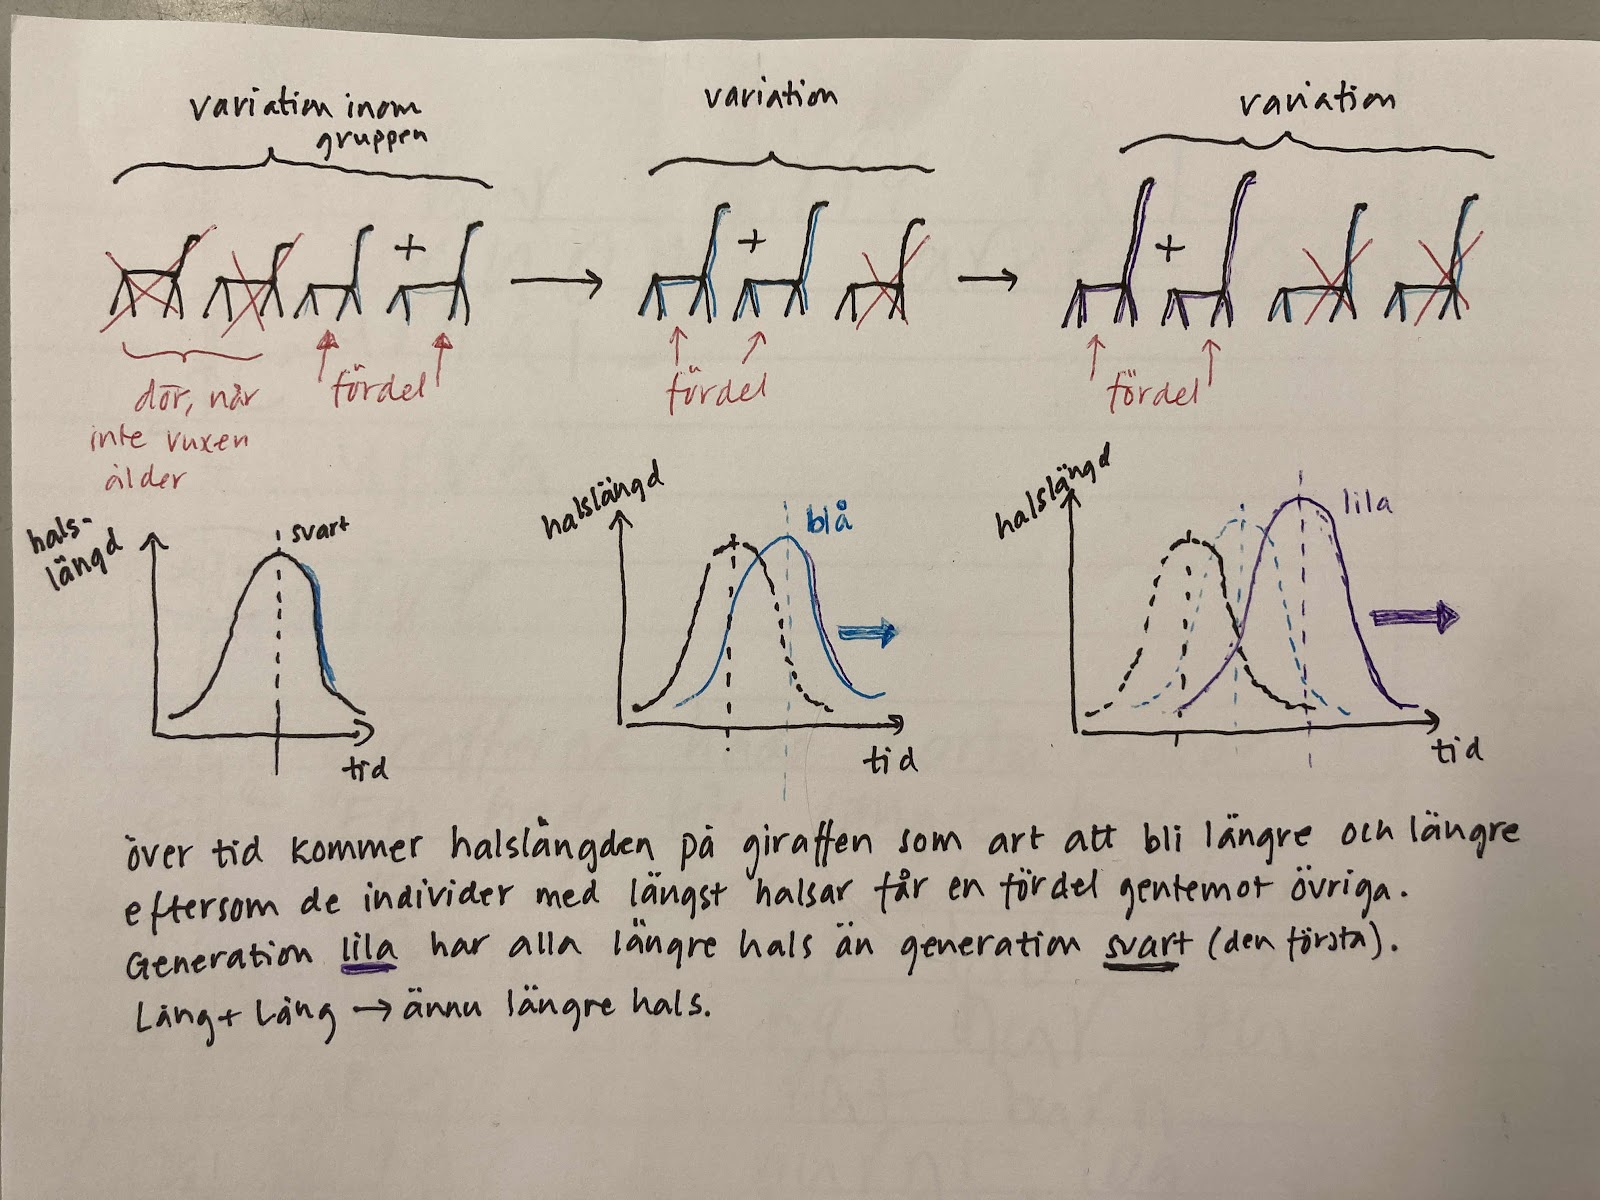 variation inom
gruppen
variation
variation
+
+
+
dör, når
inte vuxen
ålder
fördel
fördel
fördel
hals-
längd
svart
tid
halslängd
blå
tid
halslängd
lila
tid
över tid kommer halslängden på giraffen som art att bli längre och längre
eftersom de individer med längst halsar får en fördel gentemot övriga.
Generation lila har alla längre hals än generation svart (den första).
Lång + Lång → ännu längre hals.